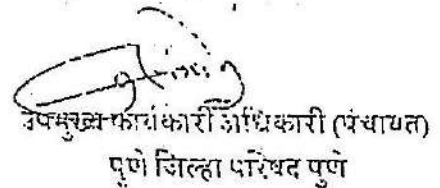 उपमुख्य कार्यकारी अधिकारी (पंचायत)
पुणे जिल्हा परिषद पुणे